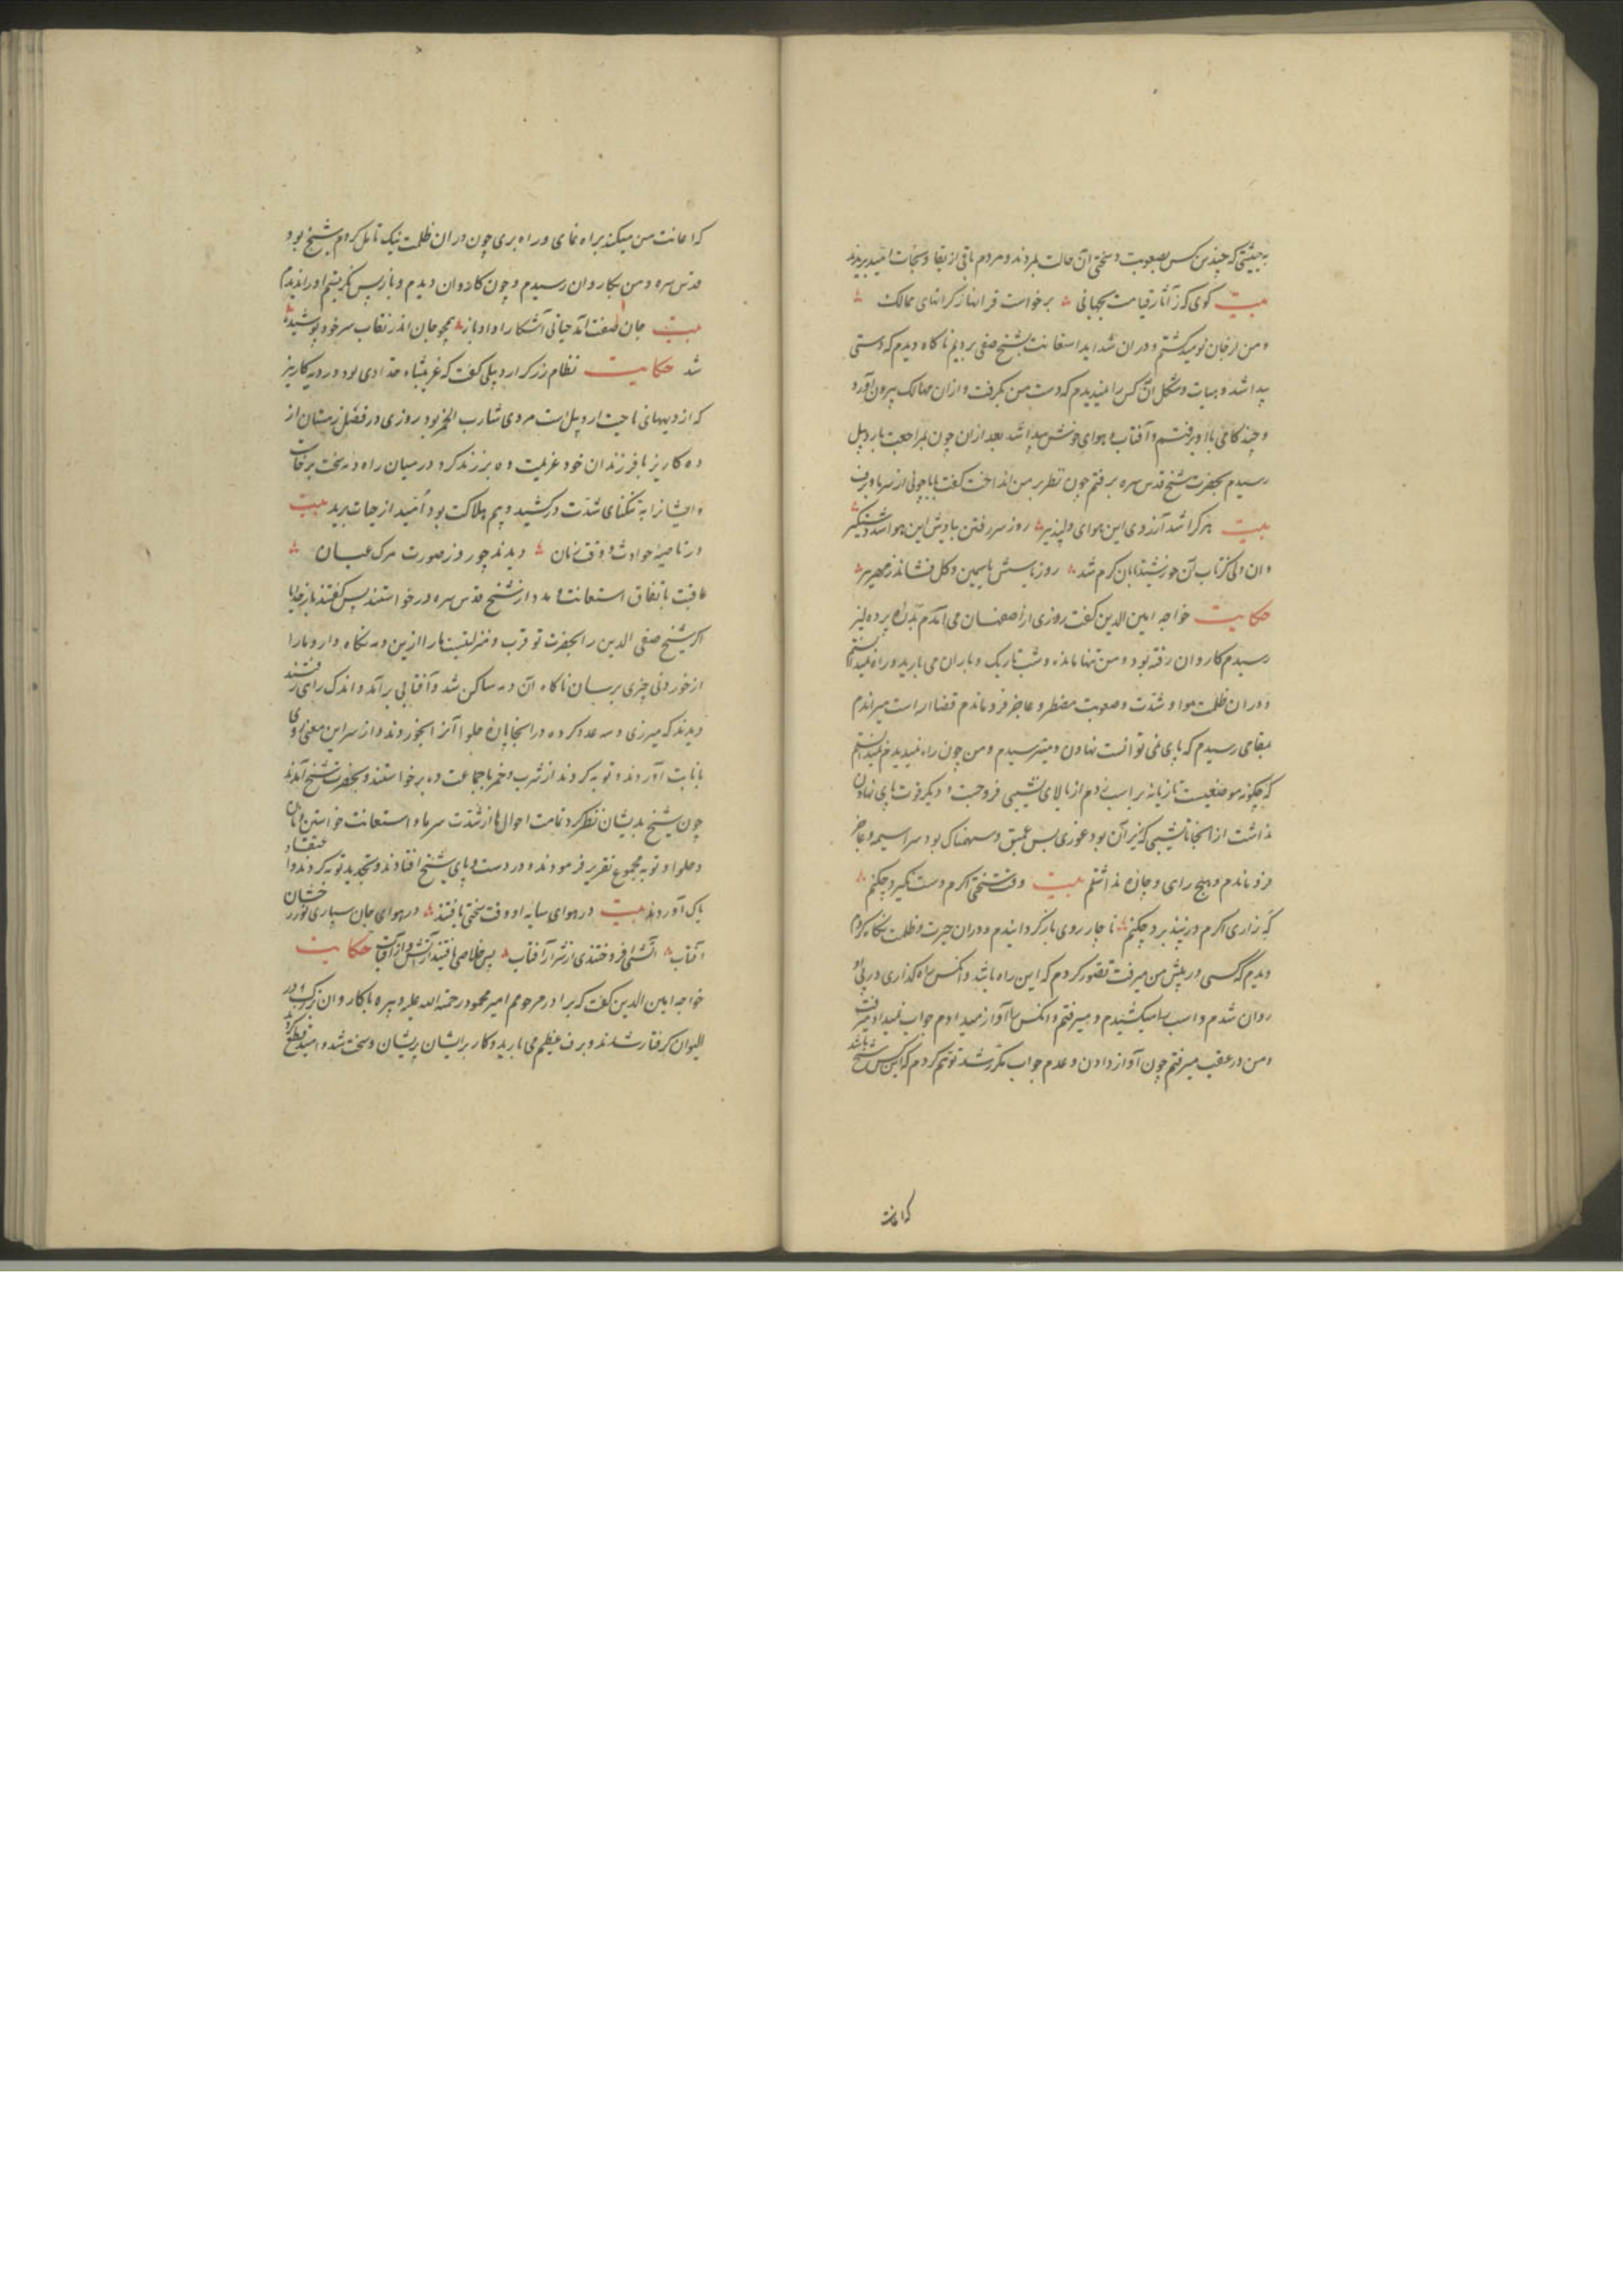 به حیثیتی که چندین کس بصعوبت و سختی آن حالت بمردند و مردم باقی از بقا و نجات امید بریدند
بیت کوی که ز آثار قیامت بجهانی برخواست قرانها ز کرانهای ممالک
و من از جان نومید کشتم و دران شداید استعانت بشیخ صفی بردیم ناکاه دیدم که دستی
پیدا شد و هیات و شکل آن کس را نمیدیدم که دست من بکرفت و ازان مهالک بیرون آورد
و چند کامی با او برفتم و آفتاب و هوای خوش پیدا شد بعد ازان چون بمراجعت باردبیل
رسیدم بحضرت شیخ قدس سره برفتم چون نظر بر من انداخت کفت بابا چونی از سرما و برف
بیت هر کرا شد آرزوی این هوای دلپذیر روز سر رفتن بادیش این هوا شد دستکیر
وان دلی کز تاب آن خورشید تابان کرم شد روز باسش یاسمین و کل فشاند زمهریر
حکایت خواجه امین الدین کفت روزی از اصفهان می آمدم
رسیدم کاروان رفته بود و من تنها مانده و شب تاریک و باران می بارید و راه نمیدانستم
و دران ظلمت هوا و شدت و صعوبت مضطر و عاجز فرو ماندم قضا را راست میراندم
بمقامی رسیدم که پای نمی توانست نهادن و میترسیدم و من چون راه نمیدیدم نمیدانستم
که چکونه موضعیست تازیانه بر اسب زدم از بالای نشیبی فرو جست و دیکر قوت پای نهادن
نداشت از انجا تا نشیبی که زیر آن بود غوری بس عمیق و سهمناک بود سراسیمه و عاجز
فرو ماندم و هیچ رای و چاره نداشتم بیت وقت سختی اکرم دست نکیرد چکنم
که زاری اکرم در نپذیرد چکنم ناچار روی باز کردانیدم و دران حیرت و ظلمت نکاه کردم
دیدم که کسی در پیش من میرفت تصور کردم که این راه باشد و آنکس راه کذاری در پی او
روان شدم و اسب را میکشیدم و میرفتم و آنکس را آواز میدادم جواب نمیداد و میرفت
و من در عقب میرفتم چون آواز دادن و عدم جواب مکرر شد توهم کردم که این کس شیخ باشد
که اعانت
که اعانت من میکند براه نمای و راه بری چون دران ظلمت نیک تامل کردم شیخ بود
قدس سره و من بکاروان رسیدم و چون کاروان دیدم و باز پس نکریستم او را ندیدم
بیت جان صفت آمد حیاتی آشکارا داد باز همچو جان اندر نقاب سر خود پوشیده
شد حکایت نظام زرکر اردبیلی کفت که غریبشاه حدادی بود در دیه کاریز
که از دیههای ناحیت اردبیل است مردی شارب الخمر بود روزی در فصل زمستان از
ده کاریز با فرزندان خود عزیمت ده برزند کرد در میان راه دمه سخت برخاست
و ایشانرا به تنکنای شدت درکشید و بیم هلاکت بود امید از حیات برید بیت
در ناصیه حوادث وقت زمان دیدند چو روز صورت مرک عیان
عاقبت باتفاق استعانت و مدد از شیخ قدس سره درخواستند پس کفتند بار خدایا
اکر شیخ صفی الدین را بحضرت تو قرب و منزلتیست ما را ازین دمه نکاه دار و ما را
از خوردنی چیزی برسان ناکاه آن دمه ساکن شد و آفتابی برآمد و اندک راهی رفتند
دیدند که میزری و سه عدد کرده در انجا پاره حلوا آنرا بخوردند و از سر این معنی روی
بانابت آوردند و توبه کردند از شرب و خمر با جماعت ده برخواستند و بحضرت شیخ آمدند
چون شیخ بدیشان نظر کرد تمامت احوال ها از شدت سرما و استعانت خواستن و نان
و حلوا و توبه مجموع تقریر فرمودند و در دست و پای شیخ افتادند و تجدید توبه کردند و اعتقاد
پاک آوردند بیت در هوای سایه او وقت سختی یافتند در هوای جان سپاری نور رخشان
آفتاب آتشی افروختندی از شرار آفتاب پس خلاصی یافتند از آتش و از آفتاب حکایت
خواجه امین الدین کفت که برادر مرحومم امیر محمود رحمة الله علیه و پیره با کاروان بزرک در
الیوان کرفتار شدند و برف عظیم می بارید و کار برایشان پریشان و سخت شد و امید قطع کردند